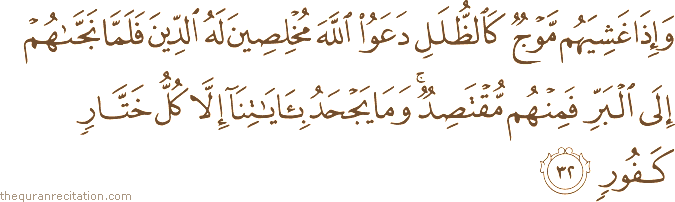 وَإِذَا غَشِيَهُم مَّوْجٌ كَالظُّلَلِ دَعَوُا۟ اللَّهَ مُخْلِصِينَ لَهُ الدِّينَ فَلَمَّا نَجَّىٰهُمْ
إِلَى الْبَرِّ فَمِنْهُم مُّقْتَصِدٌ ۚ وَمَا يَجْحَدُ بِـَٔايَـٰتِنَآ إِلَّا كُلُّ خَتَّارٍ
كَفُورٍ ٣٢
thequranrecitation.com